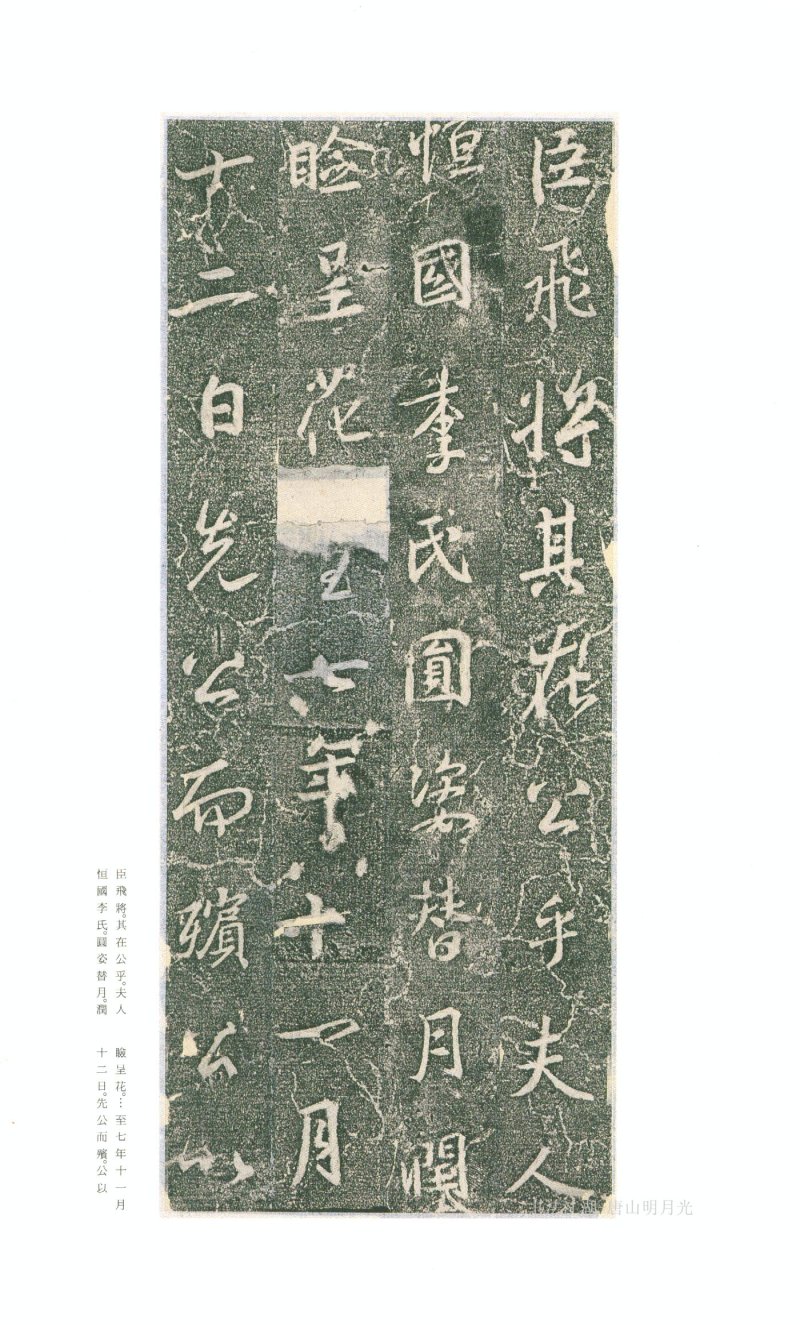 臣飛將其在公乎夫人
恒國李氏圓姿替月潤
瞼呈花至七年十一月
十二日先公而殯公以
臣飛將。其在公乎。夫人
恒國李氏。圓姿替月。潤
瞼呈花。…至七年十一月
十二日。先公而殯。公以
唐山明月光